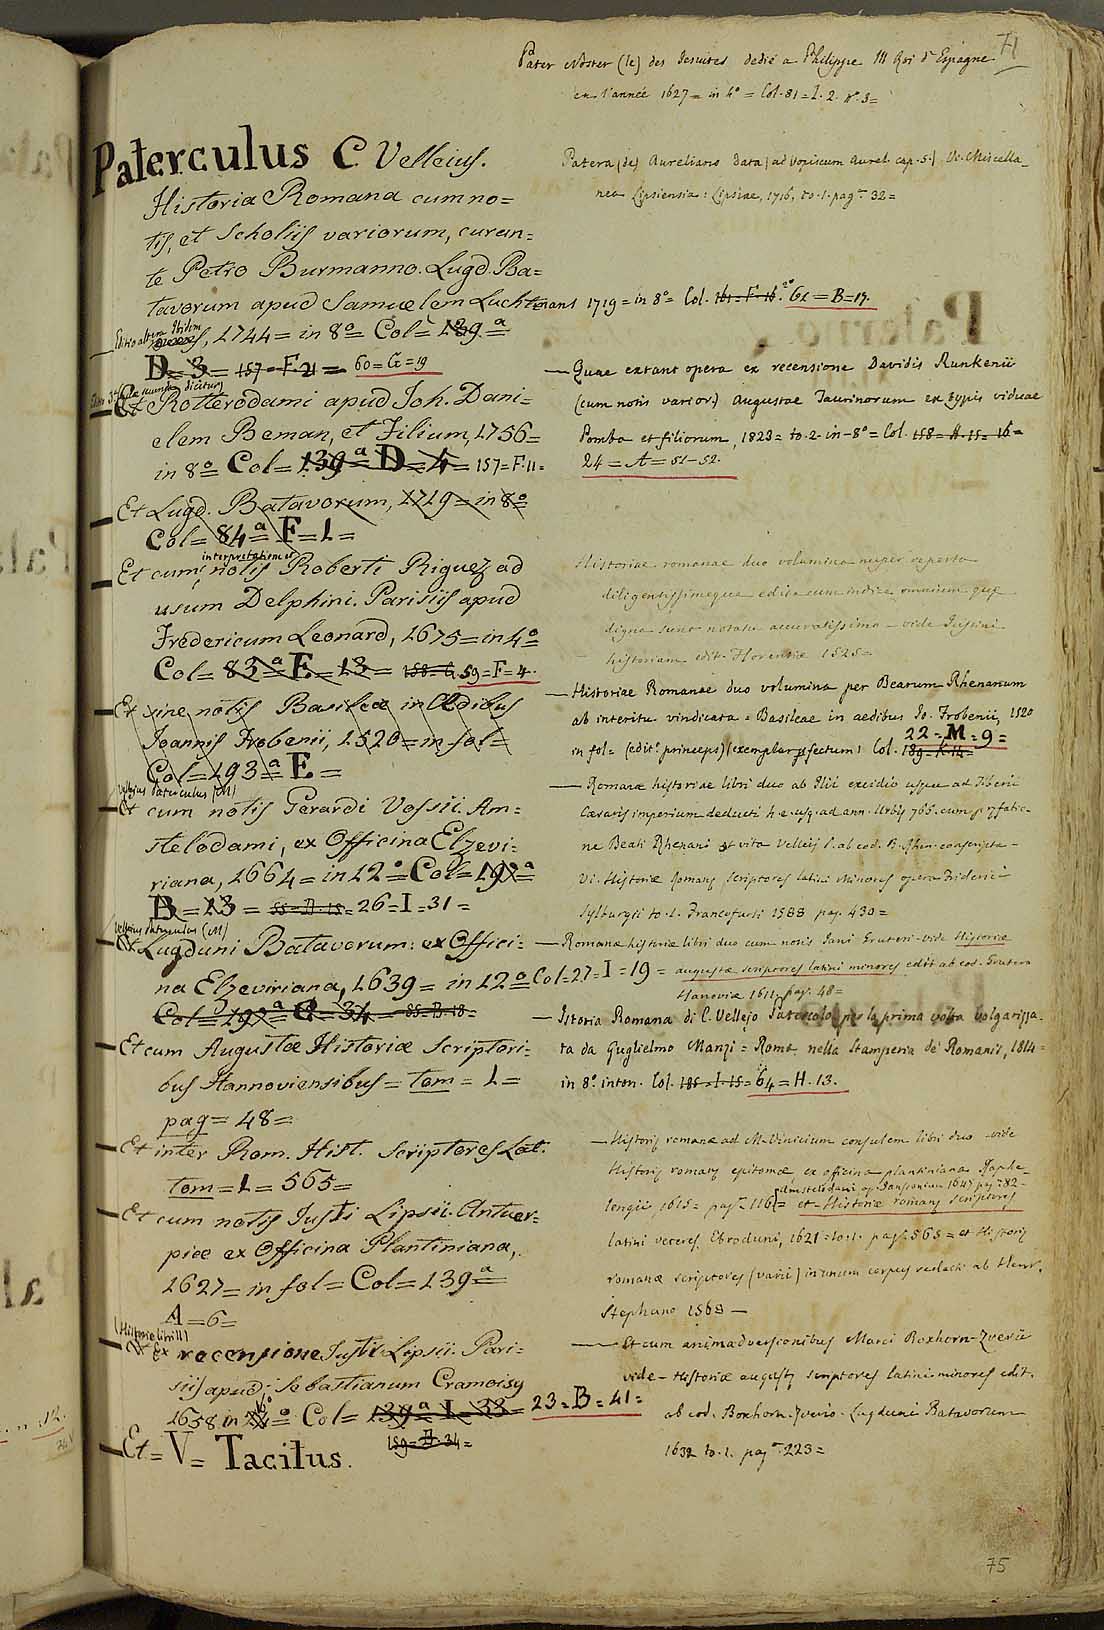 71
Pater Noster (le) des Jesuites dedié a Philippe III Roi d'Espagne
en l'année 1627 = in 4° = Col. 81 = I. 2. n°. 3 =
Paterculus C. Velleius.
Historia Romana cum no=
tis, et Scholiis variorum, curan=
te Petro Burmanno. Lugd. Ba=
tavorum apud Samuelem Luchtmans 1719 = in 8° = Col. 161 = F. 16. 62 = B = 17.
Editio altera Ibidem
1744 = in 8° Col = 139 a
D = 3 = 157 = F. 21 = 60 = G = 19
dicitur
Et Rotterodami apud Joh. Dani=
elem Beman, et Filium, 1756 =
in 8° Col = 139 a D = 4 = 157 = F. 11 =
Et Lugd. Batavorum, 1719 = in 8°
Col = 84 a F = 1 =
interpretatione et
Et cum notis Roberti Riguez ad
usum Delphini. Parisiis apud
Fredericum Leonard, 1675 = in 4°
Col = 83 a E = 13 = 158 = G. 59 = F = 4.
Et sine notis Basileæ in Ædibus
Joannis Frobenii, 1520 = in fol =
Col = 193 a E =
Vellejus Paterculus (M)
Et cum notis Gerardi Vossii. Am=
stelodami, ex Officina Elzevi=
riana, 1664 = in 12° = Col = 192 a
B = 13 = 26 = I = 31 =
Vellejus Paterculus (M)
Et Lugduni Batavorum: ex Offici=
na Elzeviriana, 1639 = in 12° Col = 27 = I = 19 =
Col = 192 a C = 34 = 85 = D. 18 =
Et cum Augustæ Historiæ Scriptori=
bus Hannoviensibus = tom = 1 =
pag = 48 =
Et inter Rom. Hist. Scriptores Lat.
tom = 1 = 565 =
Et cum notis Justi Lipsii. Antuer=
piæ ex Officina Plantiniana,
1627 = in fol = Col = 139 a
A = 6 =
(Historiæ libri II)
Et ex recensione Justi Lipsii. Pari=
siis apud Sebastianum Cramoisy
1638 in Col = 139 a I = 33 = 23 = B = 41 =
159 = D. 34 =
Et = V = Tacitus.
Patera (de) Aureliano data) ad Vopiscum Aurel. cap. 5.) V. Miscella_
nea Lipsiensia: Lipsiae, 1716, to. 1. pag. 32 =
— Quae extant opera ex recensione Davidis Runkenii
(cum notis varior.) Augustae Taurinorum ex typis viduae
Pomba et filiorum, 1823 = to. 2. in-8° = Col. 158 = H. 15 = 16 =
24 = A = 51-52.
Historiae romanae duo volumina nuper reperta
diligentissimeque edita cum indice omnium quæ
digna sunt notatu accuratissimo — vide Justini
historiam edit. Florentiæ 1525 =
— Historiae Romanae duo volumina per Beatum Rhenanum
ab interitu vindicata = Basileae in aedibus Jo. Frobenii, 1520
22 = M = 9 =
in fol = (edit.° princeps) (exemplar ) Col. 189 = K. 14 =
— Romanæ historiæ libri duo ab Ilii excidio usque ad Tiberii
Cæsaris imperium deducti h. e. usq. ad ann. Urbis 765. cum præfatio-
ne Beati Rhenani et vita Velleij ab eod. B. Rhen. conscripta -
V. Historiæ Romanæ Scriptores latini Minores opera Friderici
Sylburgii to. 1. Francofurti 1588 pag. 430 =
— Romanæ historiæ libri duo cum notis Jani Gruteri - vide Historiæ
augustæ scriptores latini minores edit ab eod. Grutero
Hanoviæ 1611, pag. 48 =
— Istoria Romana di C. Vellejo Patercolo per la prima volta volgarizza-
ta da Guglielmo Manzi = Roma nella Stamperia de Romanis, 1814 =
in 8° inton. Col. 185 = I. 15 = 64 = H. 13.
— Historiæ romanæ ad M. Vinicium consulem libri duo - vide
Historiæ romanæ epitomæ ex officina plantiniana Raphe-
Amstelodami ap. Janssonium 1647 pag. 782 -
lengii, 1615 = pag. 116 = et - Historiæ romanæ scriptores
latini veteres. Ebroduni, 1621 = to. 1. pag. 565 = et Historiæ
romanæ scriptores (varii) in unum corpus redacti ab Henr.
Stephano 1568 —
— Et cum animadversionibus Marci Boxhorn-Zverii
vide - Historiæ augustæ scriptores latini minores edit.
ab eod. Boxhorn-Zverio. Lugduni Batavorum
1632 to. 1. pag. 223 =
75